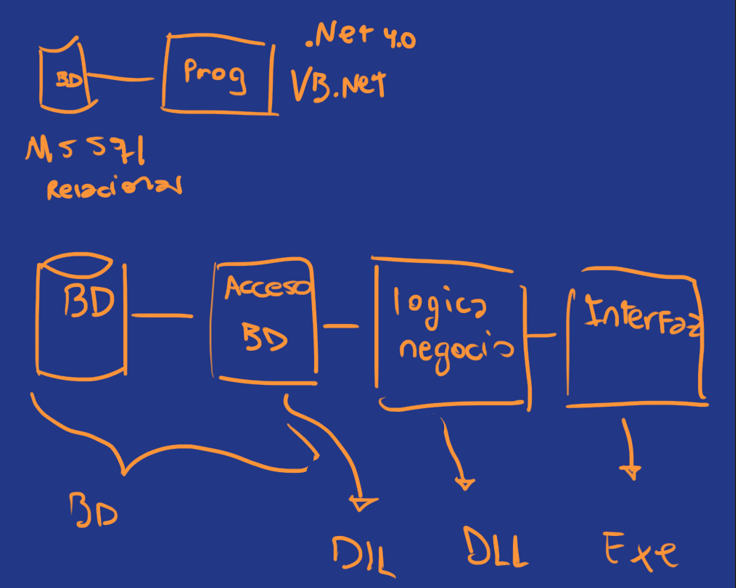 .Net 4.0
BD
Prog
VB.Net
MS Sql
Relacional
BD
Acceso
BD
logica
negocio
Interfaz
BD
DLL
DLL
Exe